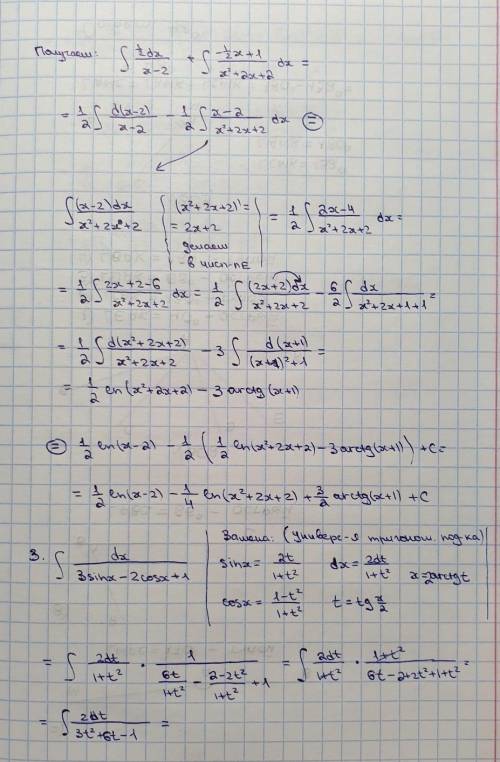 Получаем: ∫ (½dx)/(x-2) + ∫ (-½x+1)/(x²+2x+2) dx =
= 1/2 ∫ d(x-2)/(x-2) - 1/2 ∫ (x-2)/(x²+2x+2) dx ⊜
∫ (x-2)dx/(x²+2x+2) | (x²+2x+2)' = 2x+2 делаем в числ-ле | = 1/2 ∫ (2x-4)/(x²+2x+2) dx =
= 1/2 ∫ (2x+2-6)/(x²+2x+2) dx = 1/2 ∫ (2x+2)dx/(x²+2x+2) - 6/2 ∫ dx/(x²+2x+1+1) =
= 1/2 ∫ d(x²+2x+2)/(x²+2x+2) - 3 ∫ d(x+1)/((x+1)²+1) =
= 1/2 ln(x²+2x+2) - 3 arctg(x+1)
⊜ 1/2 ln(x-2) - 1/2 (1/2 ln(x²+2x+2) - 3 arctg(x+1)) + C =
= 1/2 ln(x-2) - 1/4 ln(x²+2x+2) + 3/2 arctg(x+1) + C
3. ∫ dx/(3sinx-2cosx+1)
Замена: (универс-я тригоном. под-ка)
sinx = 2t/(1+t²) dx = 2dt/(1+t²) x=2arctgt
cosx = (1-t²)/(1+t²) t = tg x/2
= ∫ 2dt/(1+t²) · 1/(6t/(1+t²) - (2-2t²)/(1+t²) + 1) = ∫ 2dt/(1+t²) · (1+t²)/(6t-2+2t²+1+t²) =
= ∫ 2dt/(3t²+6t-1) =